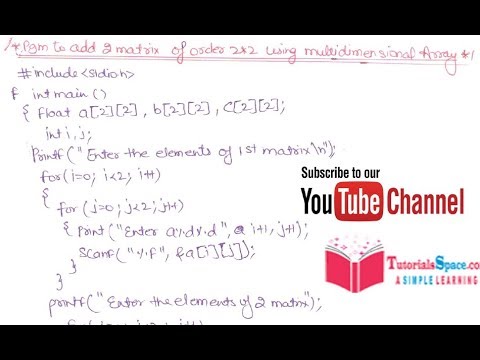 /*Pgm to add 2 matrix of order 2*2 using multidimensional Array */
#include<stdio.h>
int main()
{ float a[2][2], b[2][2], c[2][2];
int i, j;
Printf("Enter the elements of 1st matrix\n");
for(i=0; i<2; i++)
{
for (j=0; j<2; j++)
{ Print("Enter a%d%d", i+1, j+1);
Scanf("%f", &a[i][j]);
}
}
printf("Enter the elements of 2 matrix);
Subscribe to our
YouTube Channel
TutorialsSpace.co
A SIMPLE LEARNING